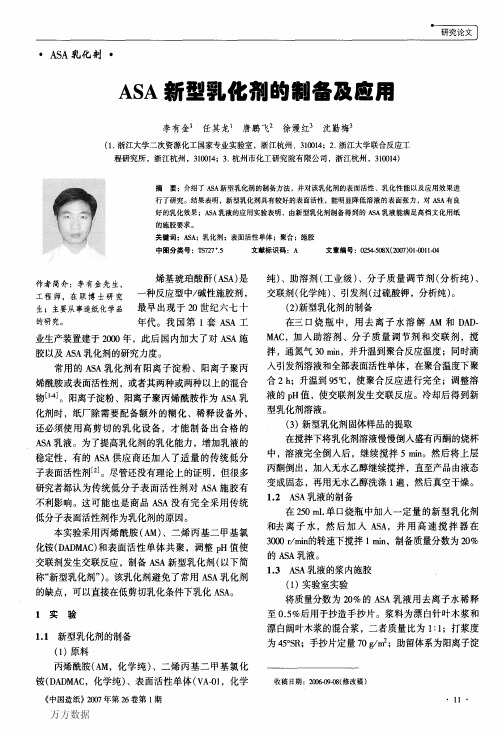 研究论文
• ASA 乳化剂 •
ASA 新型乳化剂的制备及应用
李有金¹ 任其龙¹ 唐鹏飞² 徐熳红³ 沈勤梅³
(1. 浙江大学二次资源化工国家专业实验室，浙江杭州，310014；2. 浙江大学联合反应工
程研究所，浙江杭州，310014；3. 杭州市化工研究院有限公司，浙江杭州，310014)
摘 要：介绍了 ASA 新型乳化剂的制备方法，并对该乳化剂的表面活性、乳化性能以及应用效果进
行了研究。结果表明，新型乳化剂具有较好的表面活性，能明显降低溶液的表面张力，对 ASA 有良
好的乳化效果；ASA 乳液的应用实验表明，由新型乳化剂制备得到的 ASA 乳液能满足高档文化用纸
的施胶要求。
关键词：ASA；乳化剂；表面活性单体；聚合；施胶
中图分类号：TS727⁺.5 文献标识码：A 文章编号：0254-508X(2007)01-0011-04
作者简介：李有金先生，
工程师，在职博士研究
生；主要从事造纸化学品
的研究。
烯基琥珀酸酐(ASA)是
一种反应型中/碱性施胶剂，
最早出现于 20 世纪六七十
年代。我国第 1 套 ASA 工
业生产装置建于 2000 年，此后国内加大了对 ASA 施
胶以及 ASA 乳化剂的研究力度。
常用的 ASA 乳化剂有阳离子淀粉、阳离子聚丙
烯酰胺或表面活性剂，或者其两种或两种以上的混合
物[1-4]。阳离子淀粉、阳离子聚丙烯酰胺作为 ASA 乳
化剂时，纸厂除需要配备额外的糊化、稀释设备外，
还必须使用高剪切的乳化设备，才能制备出合格的
ASA 乳液。为了提高乳化剂的乳化能力，增加乳液的
稳定性，有的 ASA 供应商还加入了适量的传统低分
子表面活性剂[2]。尽管还没有理论上的证明，但很多
研究者都认为传统低分子表面活性剂对 ASA 施胶有
不利影响。这可能也是商品 ASA 没有完全采用传统
低分子表面活性剂作为乳化剂的原因。
本实验采用丙烯酰胺（AM）、二烯丙基二甲基氯
化铵(DADMAC)和表面活性单体共聚，调整 pH 值使
交联剂发生交联反应，制备 ASA 新型乳化剂(以下简
称“新型乳化剂”)。该乳化剂避免了常用 ASA 乳化剂
的缺点，可以直接在低剪切乳化条件下乳化 ASA。
1 实 验
1.1 新型乳化剂的制备
(1)原料
丙烯酰胺(AM，化学纯)、二烯丙基二甲基氯化
铵(DADMAC，化学纯)、表面活性单体（VA-01，化学
纯)、助溶剂（工业级）、分子质量调节剂(分析纯)、
交联剂(化学纯)、引发剂(过硫酸钾，分析纯)。
(2)新型乳化剂的制备
在三口烧瓶中，用去离子水溶解 AM 和 DAD-
MAC，加入助溶剂、分子质量调节剂和交联剂，搅
拌，通氮气 30 min，并升温到聚合反应温度；同时滴
入引发剂溶液和全部表面活性单体，在聚合温度下聚
合 2 h；升温到 95℃，使聚合反应进行完全；调整溶
液的 pH 值，使交联剂发生交联反应。冷却后得到新
型乳化剂溶液。
(3)新型乳化剂固体样品的提取
在搅拌下将乳化剂溶液慢慢倒入盛有丙酮的烧杯
中，溶液完全倒入后，继续搅拌 5 min。然后将上层
丙酮倒出，加入无水乙醇继续搅拌，直至产品由液态
变成固态，再用无水乙醇洗涤 1 遍，然后真空干燥。
1.2 ASA 乳液的制备
在 250 mL 单口烧瓶中加入一定量的新型乳化剂
和去离子水，然后加入 ASA，并用高速搅拌器在
3000 r/min的转速下搅拌 1 min，制备质量分数为 20%
的 ASA 乳液。
1.3 ASA 乳液的浆内施胶
(1)实验室实验
将质量分数为 20% 的 ASA 乳液用去离子水稀释
至 0.5%后用于抄造手抄片。浆料为漂白针叶木浆和
漂白阔叶木浆的混合浆，二者质量比为 1:1；打浆度
为 45°SR；手抄片定量 70 g/m²；助留体系为阳离子淀
收稿日期：2006-09-08(修改稿)
《中国造纸》2007年第 26 卷第 1 期
• 11 •
万方数据